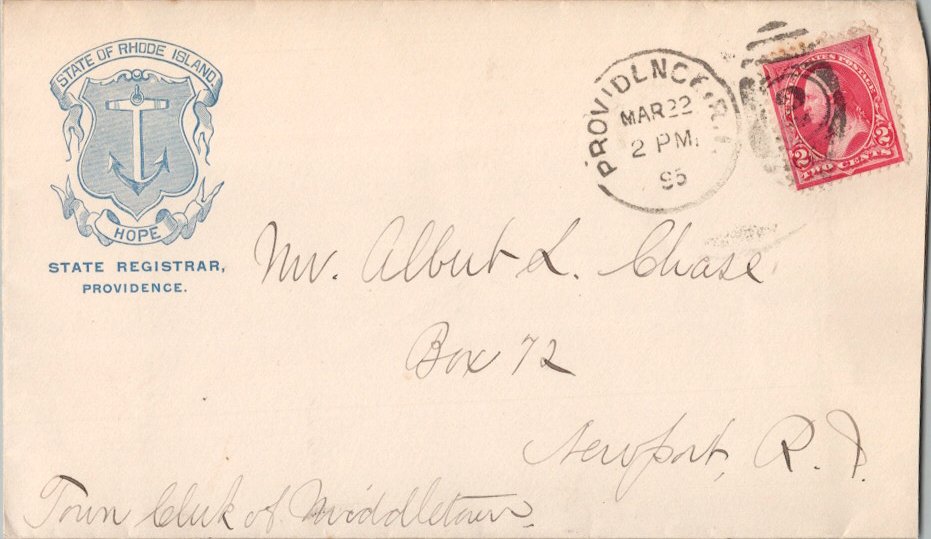 STATE OF RHODE ISLAND.
HOPE
STATE REGISTRAR,
PROVIDENCE.
PROVIDENCE, R.I.
MAR 22
2 PM
95
2
UNITED STATES POSTAGE
2 2
TWO CENTS
Mr. Albert L. Chase
Box 72
Newport, R. I.
Town Clerk of Middletown.